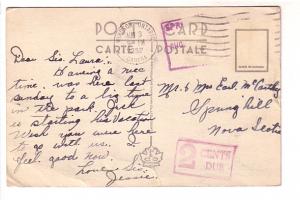 POST CARD
CARTE POSTALE
Dear Sis. Laura:-
Having a nice
time. was here last
Sunday to a big time
in the park. Jack
is starting his vacation
Wish you were here
to go with us. I
feel good now.
Love Sis.
Jessie.
Mr. & Mrs Earl. McCarthy
Spring Hill
Nova Scotia
2 CENTS
DUE